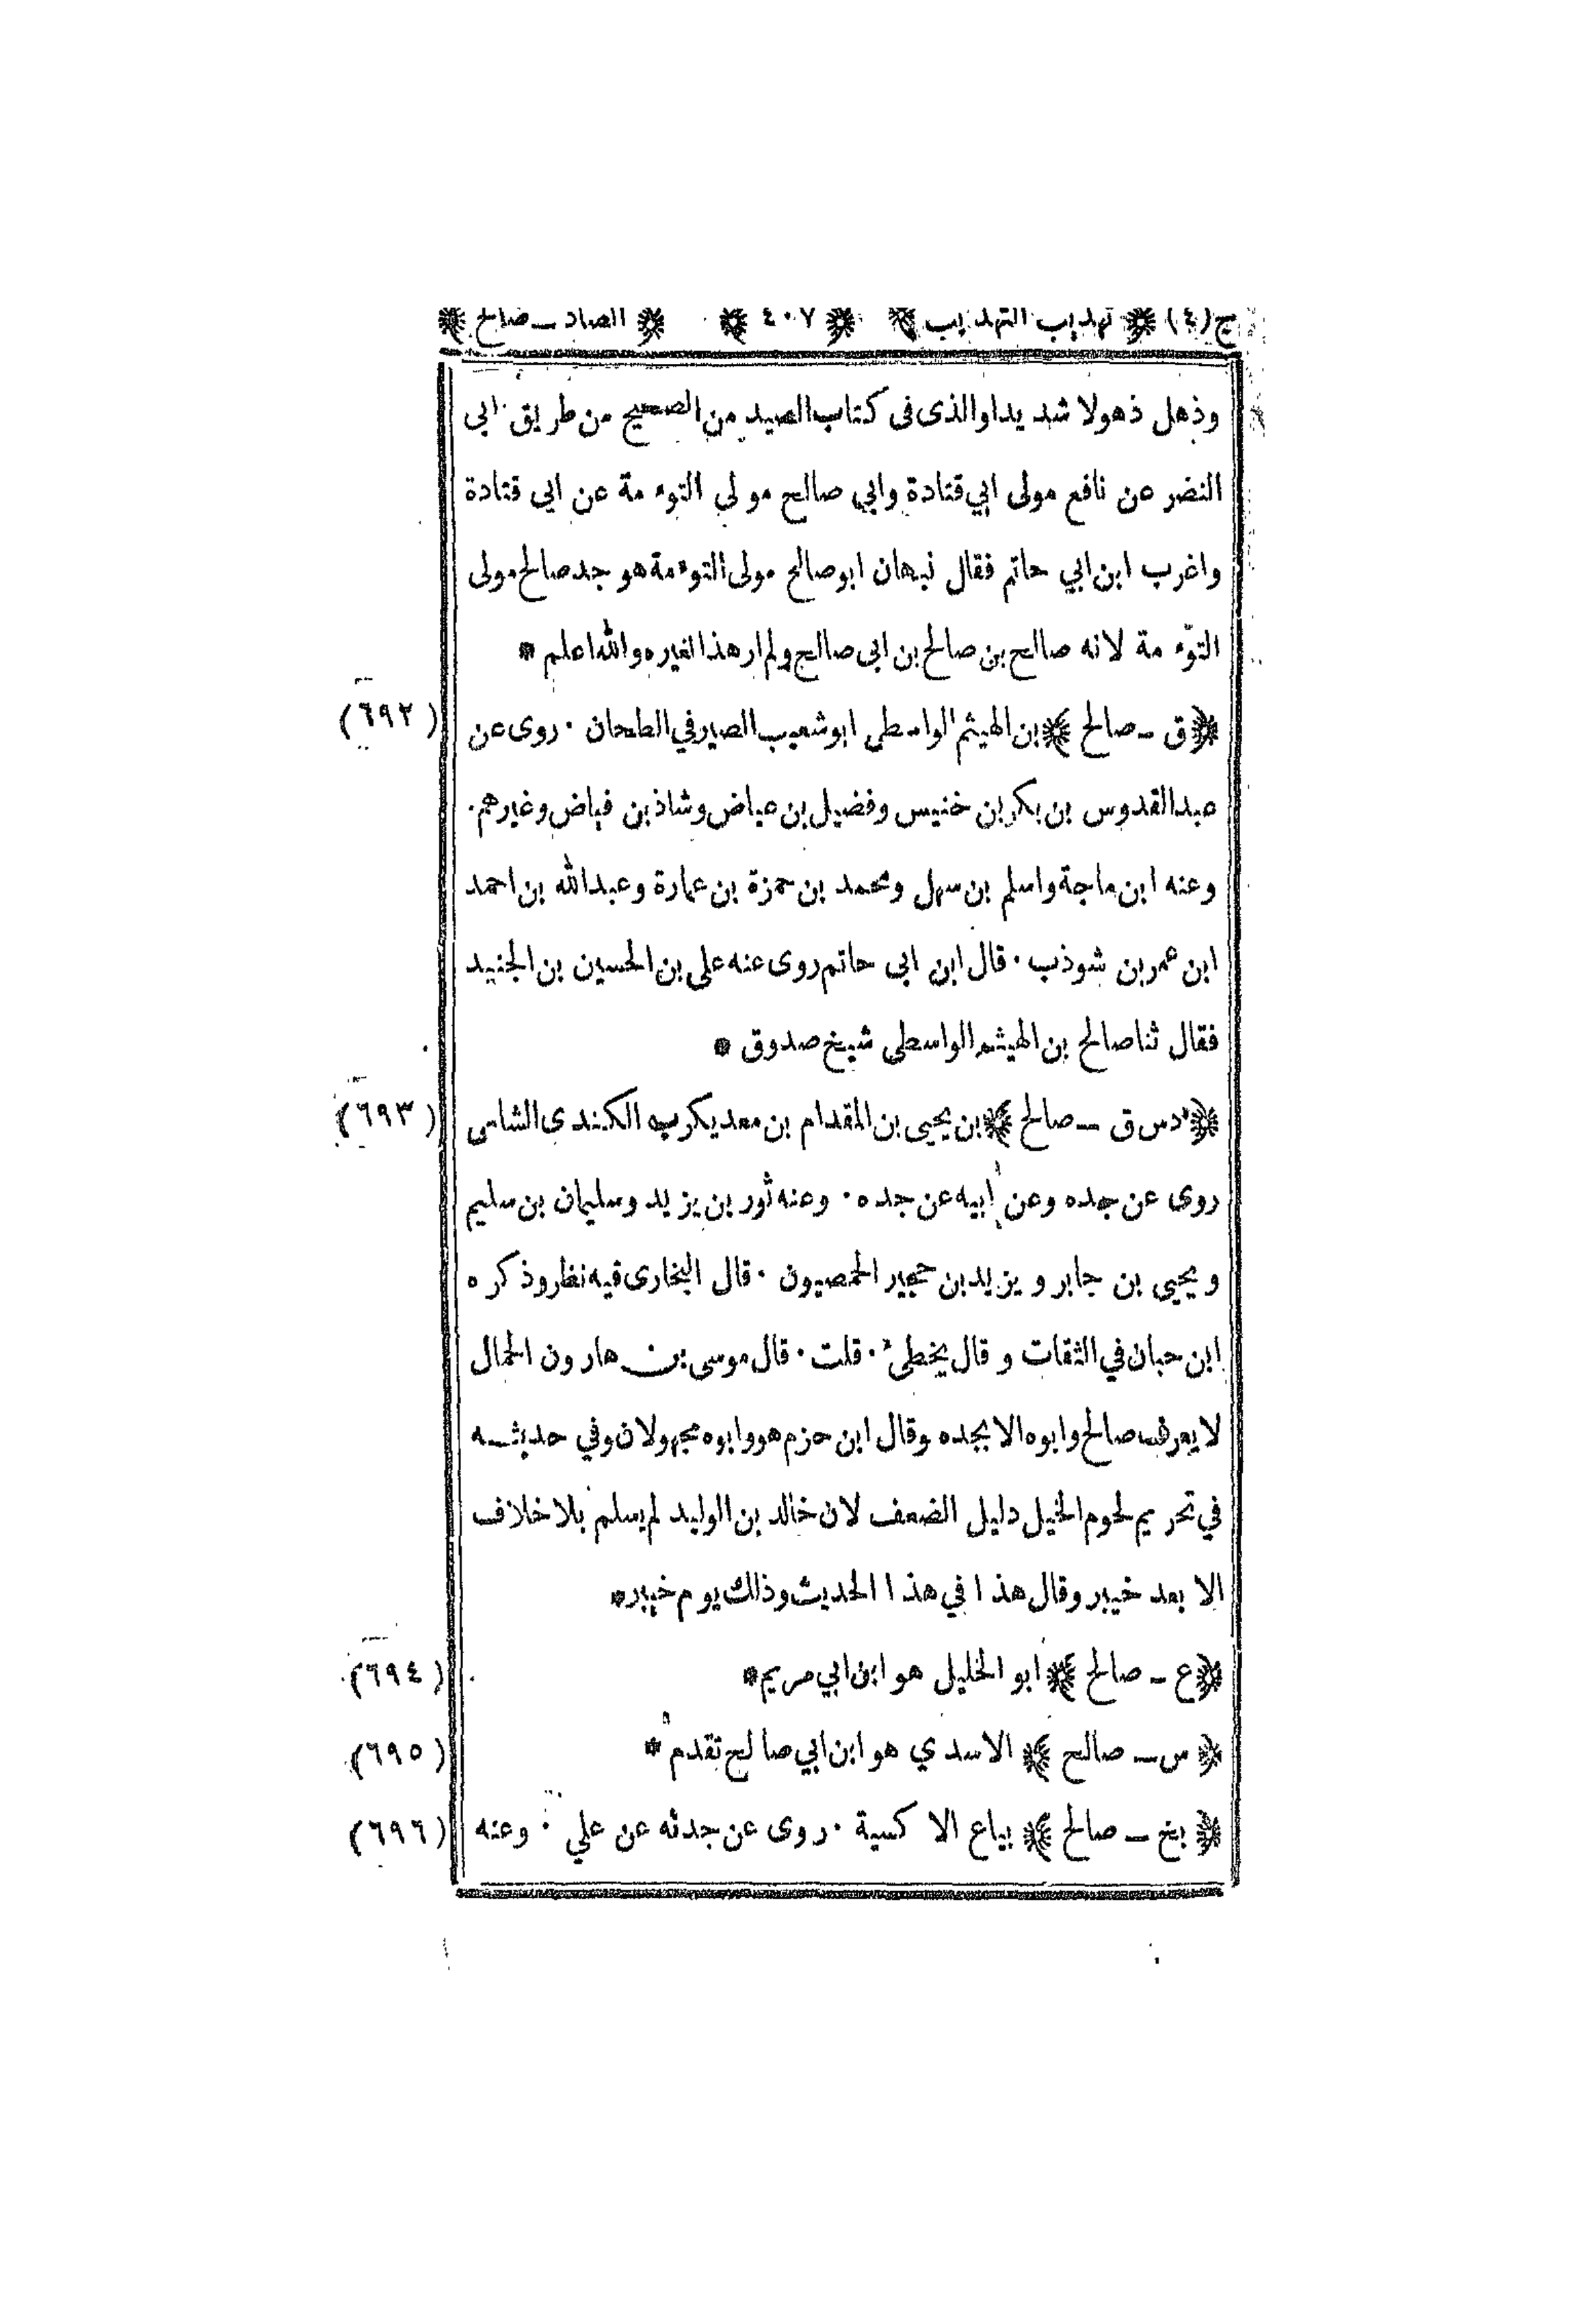 ج(٤) ﴿ تهذيب التهذيب ﴾ ﴿ ٤٠٧ ﴾ ﴿ الصاد ـ صالح ﴾
وذهل ذهولا شديدا والذى فى كتاب الصيد من الصحيح من طريق ابى
النضر عن نافع مولى ابي قتادة وابي صالح مولى التوءمة عن ابى قتادة
واغرب ابن ابي حاتم فقال نبهان ابو صالح مولى التوءمة هو جد صالح مولى
التوّءمة لانه صالح بن صالح بن ابى صالح ولم ار هذا لغيره والله اعلم *
﴿ ق ـ صالح ﴾ بن الهيثم الواسطى ابو شعيب الصيرفي الطحان . روى عن (٦٩٢)
عبد القدوس بن بكر بن خنيس وفضيل بن عياض وشاذ بن فياض وغيرهم .
وعنه ابن ماجة واسلم بن سهل ومحمد بن حمزة بن عمارة وعبد الله بن احمد
ابن عمر بن شوذب . قال ابن ابى حاتم روى عنه على بن الحسين بن الجنيد
فقال ثنا صالح بن الهيثم الواسطى شيخ صدوق *
﴿ د س ق ـ صالح ﴾ بن يحيى بن المقدام بن معديكرب الكندى الشامى (٦٩٣)
روى عن جده وعن أبيه عن جده . وعنه ثور بن يزيد وسليمان بن سليم
ويحيى بن جابر ويزيد بن حجير الحمصيون . قال البخارى فيه نظر وذكره
ابن حبان في الثقات وقال يخطىء . قلت . قال موسى بن هارون الحمال
لا يعرف صالح وابوه الا بجده وقال ابن حزم هو وابوه مجهولان وفي حديثه
في تحريم لحوم الخيل دليل الضعف لان خالد بن الوليد لم يسلم بلا خلاف
الا بعد خيبر وقال هذا في هذا الحديث وذلك يوم خيبر *
﴿ ع ـ صالح ﴾ ابو الخليل هو ابن ابي مريم * (٦٩٤)
﴿ س ـ صالح ﴾ الاسدي هو ابن ابي صالح تقدم * (٦٩٥)
﴿ بخ ـ صالح ﴾ بياع الاكسية . روى عن جدته عن علي . وعنه (٦٩٦)